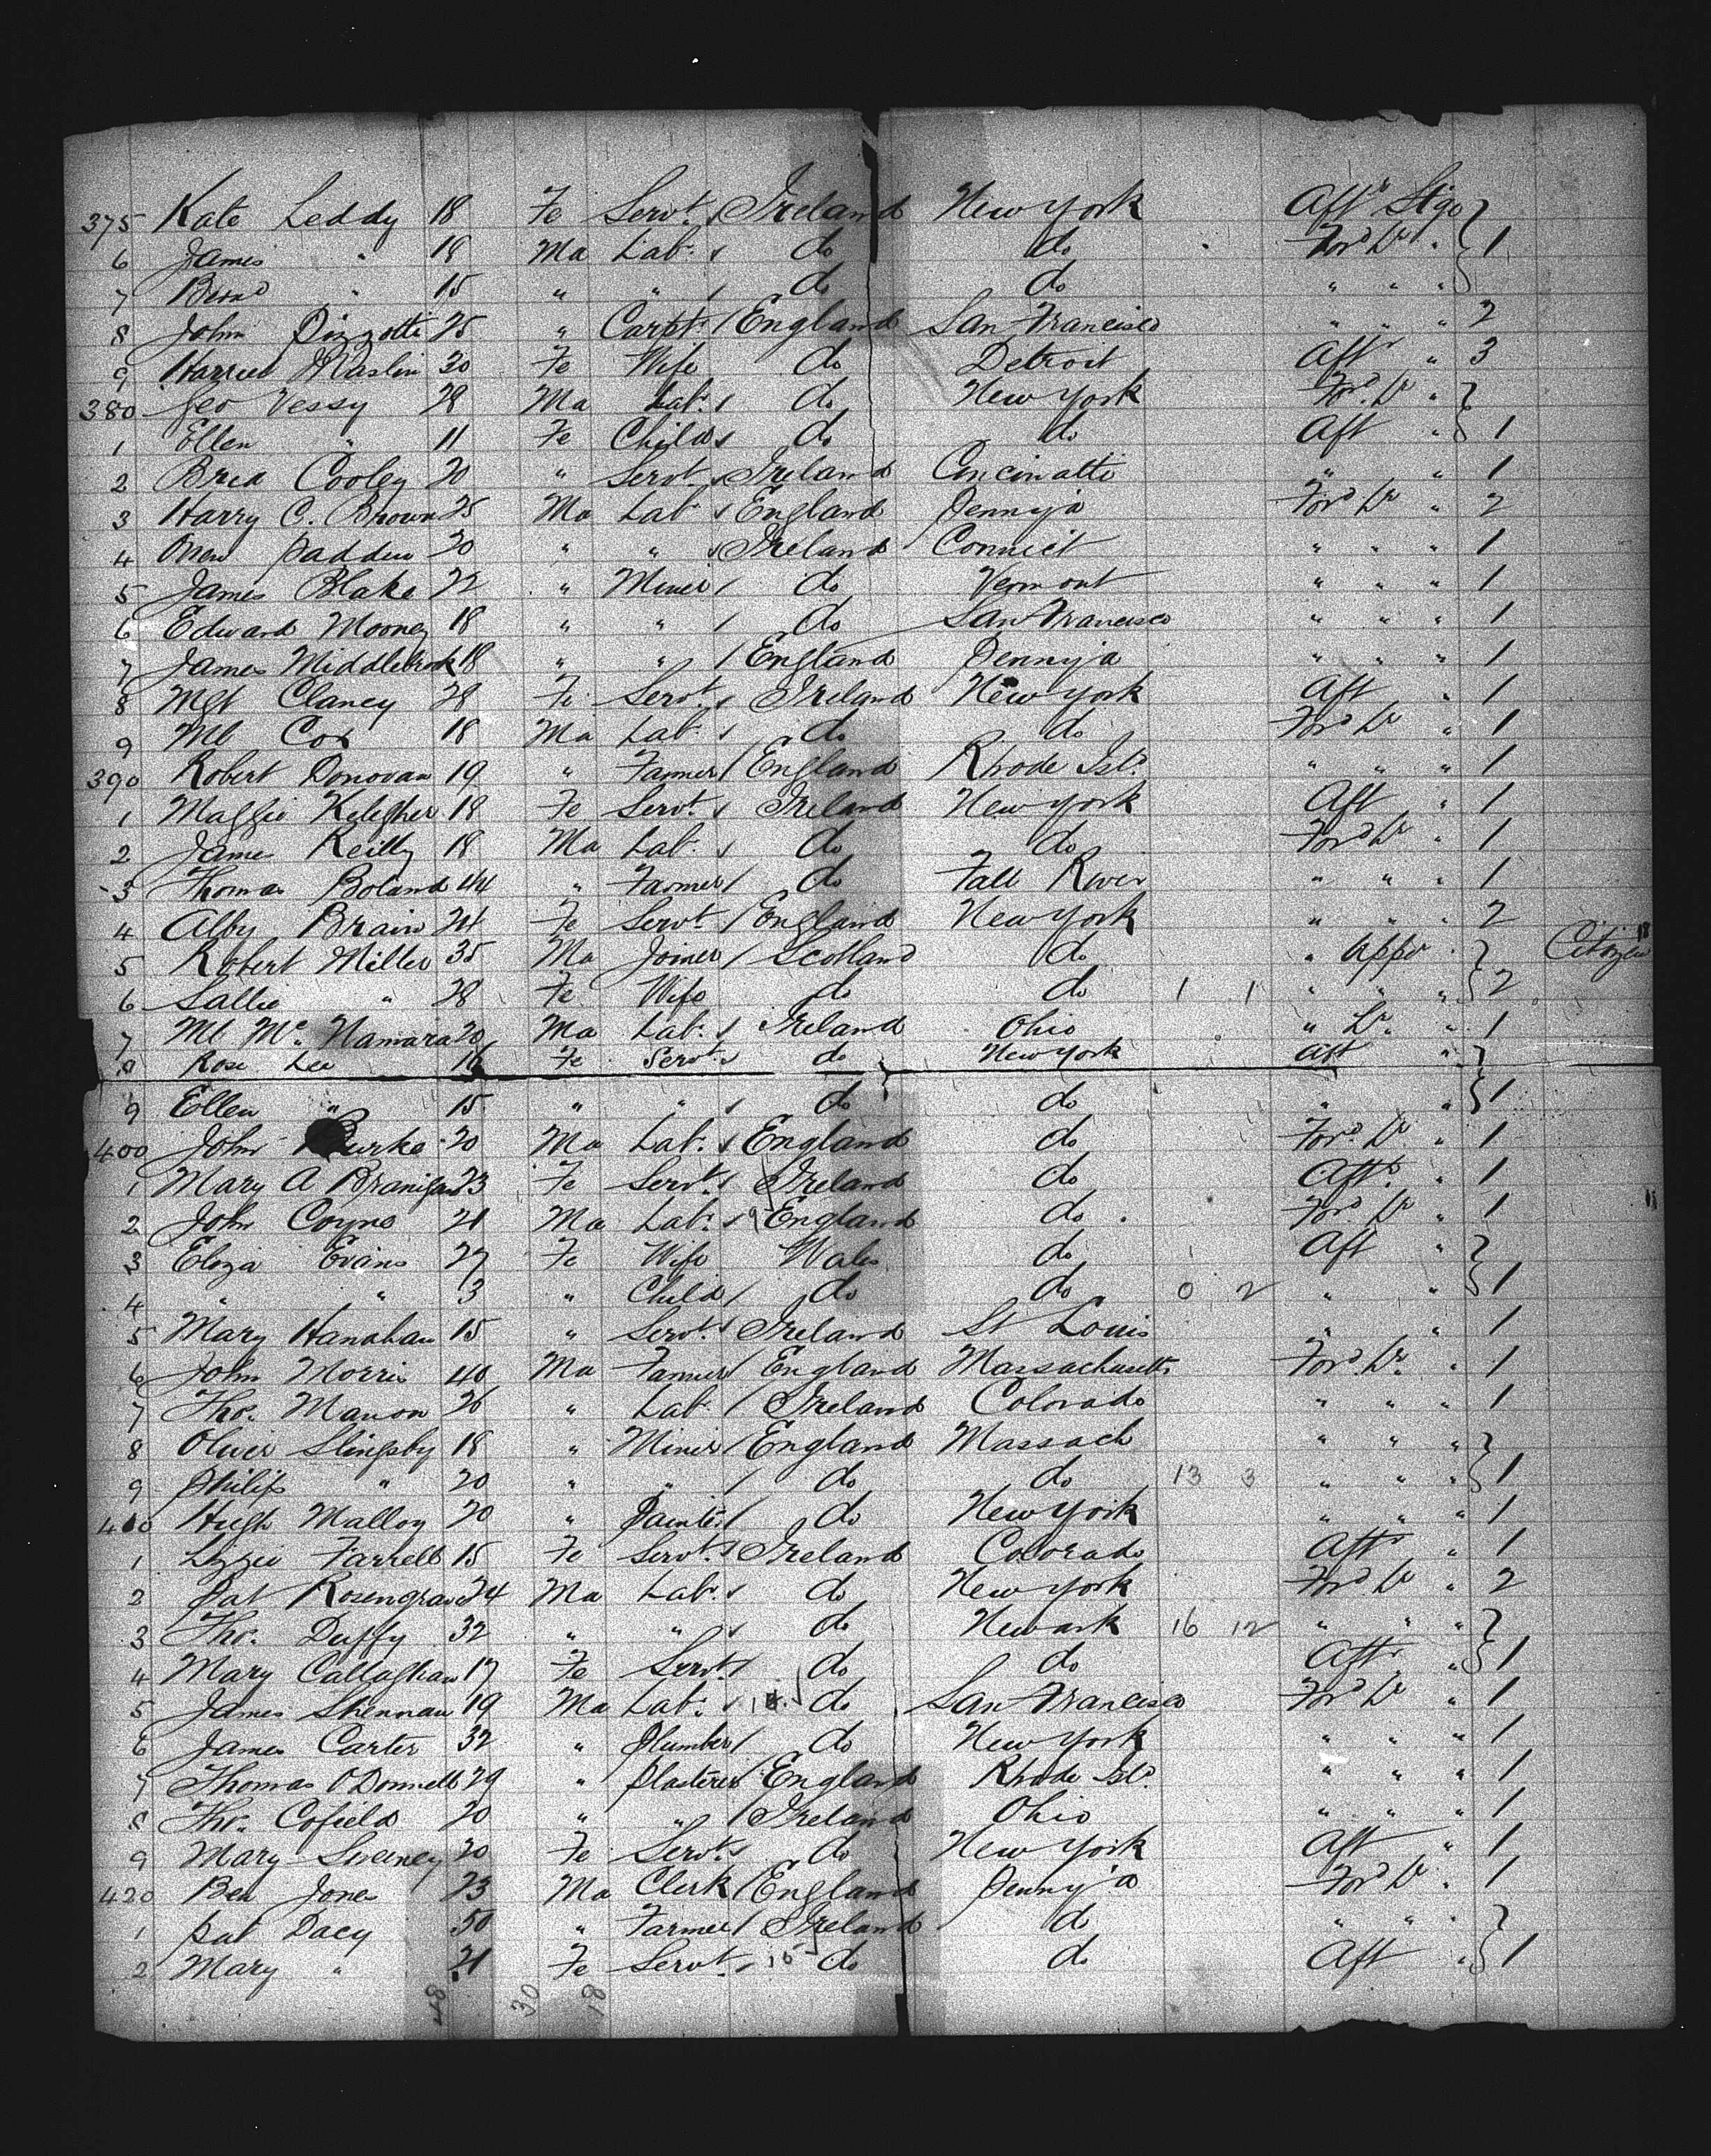 375 Kate Leddy 18 Fe Servt. Ireland New York Aft Stge
6 James " 18 Ma Lab. do do Ford Lr " 1
7 Bernd " 15 " " do do " " "
8 John 25 " Carpt. England San Francisco " " " 2
9 Harriet Maslin 30 Fe Wife do Detroit Aft " 3
380 Geo Vessy 28 Ma Lab. do New York Ford Lr "
1 Ellen " 11 Fe Child do do Aft " 1
2 Brid Cooley 20 " Servt. Ireland Cincinatti " " 1
3 Harry C. Brown 25 Ma Lab. England Pennya Ford Lr " 2
4 Owen Padden 20 " " Ireland Connict " " " 1
5 James Blake 22 " Miner do Vermont " " " 1
6 Edward Mooney 18 " " do San Francisco " " " 1
7 James Middlebrook 18 " " England Pennya " " " 1
8 Mgt Clancy 28 Fe Servt. Ireland New York Aft " 1
9 Ml Cox 18 Ma Lab. do do Ford Lr " 1
390 Robert Donovan 19 " Farmer England Rhode Isld. " " " 1
1 Maggie Kelegher 18 Fe Servt. Ireland New York Aft " 1
2 James Reilly 18 Ma Lab. do do Ford Lr " 1
3 Thomas Boland 44 " Farmer do Fall River " " " 1
4 Alby Brain 24 Fe Servt. England New York " " " 2
5 Robert Miller 35 Ma Joiner Scotland do " Uppr " Citizen
6 Sallie " 28 Fe Wife do do 1 1 " " " 2
7 Ml McNamara 20 Ma Lab. Ireland Ohio " Lr. " 1
8 Rose Lee 16 Fe Servt. do New York Aft "
9 Ellen " 15 " " do do " " 1
400 John Burke 20 Ma Lab. England do Ford Lr " 1
1 Mary A Branigan 23 Fe Servt. Ireland do Aft. " 1
2 John Coyne 21 Ma Lab. 9 England do Ford Lr " 1
3 Eliza Evans 27 Fe Wife Wales do Aft "
4 " " 3 " Child do do 0 2 " " 1
5 Mary Hanahan 15 " Servt. Ireland St Louis " " 1
6 John Morris 40 Ma Farmer England Massachusetts Ford Lr. " 1
7 Tho. Manon 26 " Lab. Ireland Colorado " " " 1
8 Oliver Slingsby 18 " Miner England Massach " " "
9 Philip " 20 " " do do 13 3 " " " 1
410 Hugh Malloy 20 " Painter do New York " " " 1
1 Lizzie Farrell 15 Fe Servt. Ireland Colorado Aft " 1
2 Pat Rosengrave 24 Ma Lab. do New York Ford Lr " 2
3 Tho. Duffy 32 " " do Newark 16 12 " " "
4 Mary Callaghan 17 Fe Servt. do do Aft " 1
5 James Shennan 19 Ma Lab. do San Francisco Ford Lr " 1
6 James Carter 32 " Plumber do New York " " " 1
7 Thomas O'Donnell 29 " Plasterer England Rhode Isld. " " " 1
8 Tho. Cofield 20 " " Ireland Ohio " " " 1
9 Mary Sweeney 20 Fe Servt. do New York Aft " 1
420 Ben Jones 23 Ma Clerk England Pennya Ford Lr " 1
1 Pat Dacy 50 " Farmer Ireland do " " "
2 Mary " 21 Fe Servt. 15 do do Aft " 1
30 18